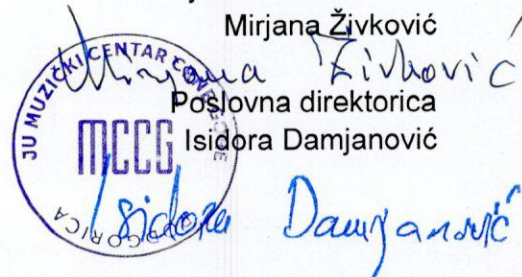 Mirjana Živković
Mirjana Živković
Poslovna direktorica
Isidora Damjanović
Isidora Damjanović
JU MUZIČKI CENTAR CRNE GORE
MCCG
PODGORICA